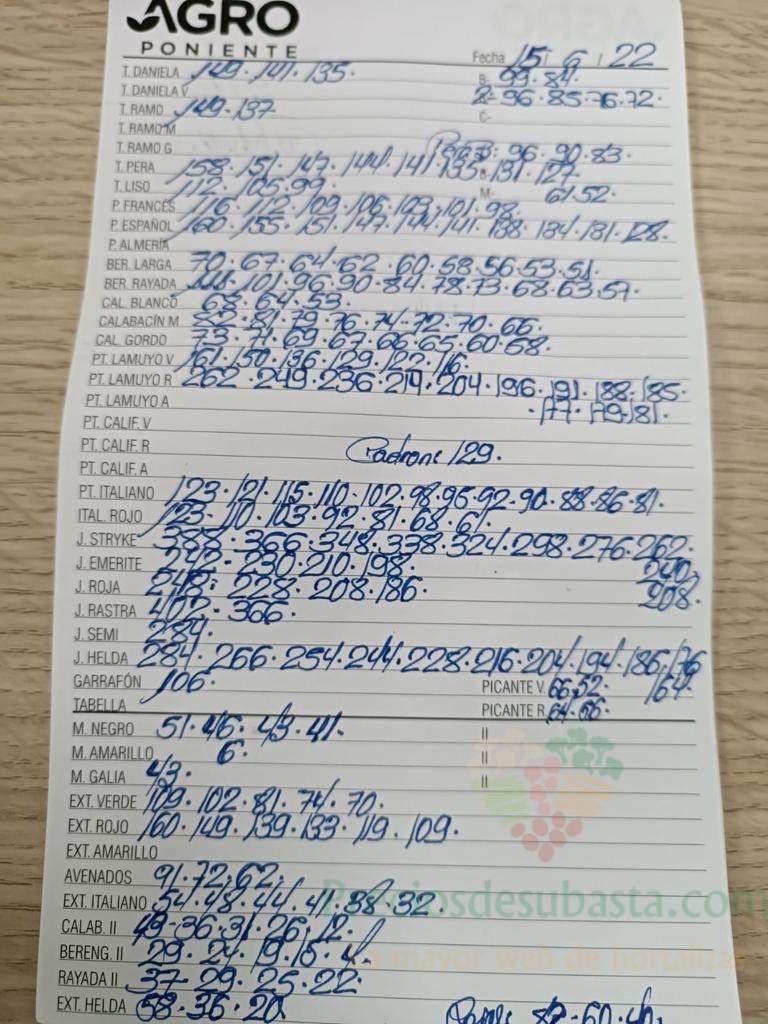 AGRO
PONIENTE
Fecha 15 / 6 / 22
T. DANIELA 149 · 141 · 135 · B- 99 · 84 ·
T. DANIELA V 96 · 85 · 76 · 72 ·
T. RAMO 149 · 137 C-
T. RAMO M
T. RAMO G 96 · 90 · 83 ·
T. PERA 158 · 151 · 147 · 144 · 141 · 135 · 131 · 127 ·
T. LISO 112 · 105 · 99 · M- 61 · 52 ·
P. FRANCÉS 116 · 112 · 109 · 106 · 103 · 101 · 98 ·
P. ESPAÑOL 160 · 155 · 151 · 147 · 144 · 141 · 138 · 134 · 131 · 128 ·
P. ALMERÍA
BER. LARGA 70 · 67 · 64 · 62 · 60 · 58 · 56 · 53 · 51 ·
BER. RAYADA 101 · 96 · 90 · 84 · 78 · 73 · 68 · 63 · 57 ·
CAL. BLANCO 68 · 64 · 53 ·
CALABACÍN M 81 · 79 · 76 · 74 · 72 · 70 · 66 ·
CAL. GORDO 73 · 71 · 69 · 67 · 66 · 65 · 60 · 58 ·
PT. LAMUYO V 161 · 150 · 136 · 129 · 122 · 116 ·
PT. LAMUYO R 262 · 249 · 236 · 219 · 204 · 196 · 191 · 188 · 185 ·
PT. LAMUYO A · 177 · 179 · 181 ·
PT. CALIF. V
PT. CALIF. R Padron: 129 ·
PT. CALIF. A
PT. ITALIANO 123 · 121 · 115 · 110 · 102 · 98 · 96 · 92 · 90 · 88 · 86 · 81 ·
ITAL. ROJO 123 · 110 · 103 · 92 · 81 · 68 · 61 ·
J. STRYKE 388 · 366 · 348 · 338 · 324 · 298 · 276 · 262 ·
J. EMERITE 242 · 230 · 210 · 198 · 240 ·
J. ROJA 248 · 228 · 208 · 186 · 208 ·
J. RASTRA 402 · 366 ·
J. SEMI 284 ·
J. HELDA 284 · 266 · 254 · 244 · 228 · 216 · 204 · 194 · 186 · 176
GARRAFÓN 106 · PICANTE V. 66 · 52 · 164 ·
TABELLA PICANTE R. 64 · 66 ·
M. NEGRO 51 · 46 · 43 · 41 · II
M. AMARILLO 6 · II
M. GALIA 43 · II
EXT. VERDE 109 · 102 · 81 · 74 · 70 ·
EXT. ROJO 160 · 149 · 139 · 133 · 119 · 109 ·
EXT. AMARILLO
AVENADOS 91 · 72 · 62 ·
EXT. ITALIANO 54 · 48 · 44 · 41 · 38 · 32 ·
Preciosdesubasta.com
CALAB. II 49 · 36 · 31 · 26 · 12 ·
BERENG. II 29 · 24 · 19 ·
La mayor web de hortalizas
RAYADA II 37 · 29 · 25 · 22 ·
EXT. HELDA 58 · 36 · 20